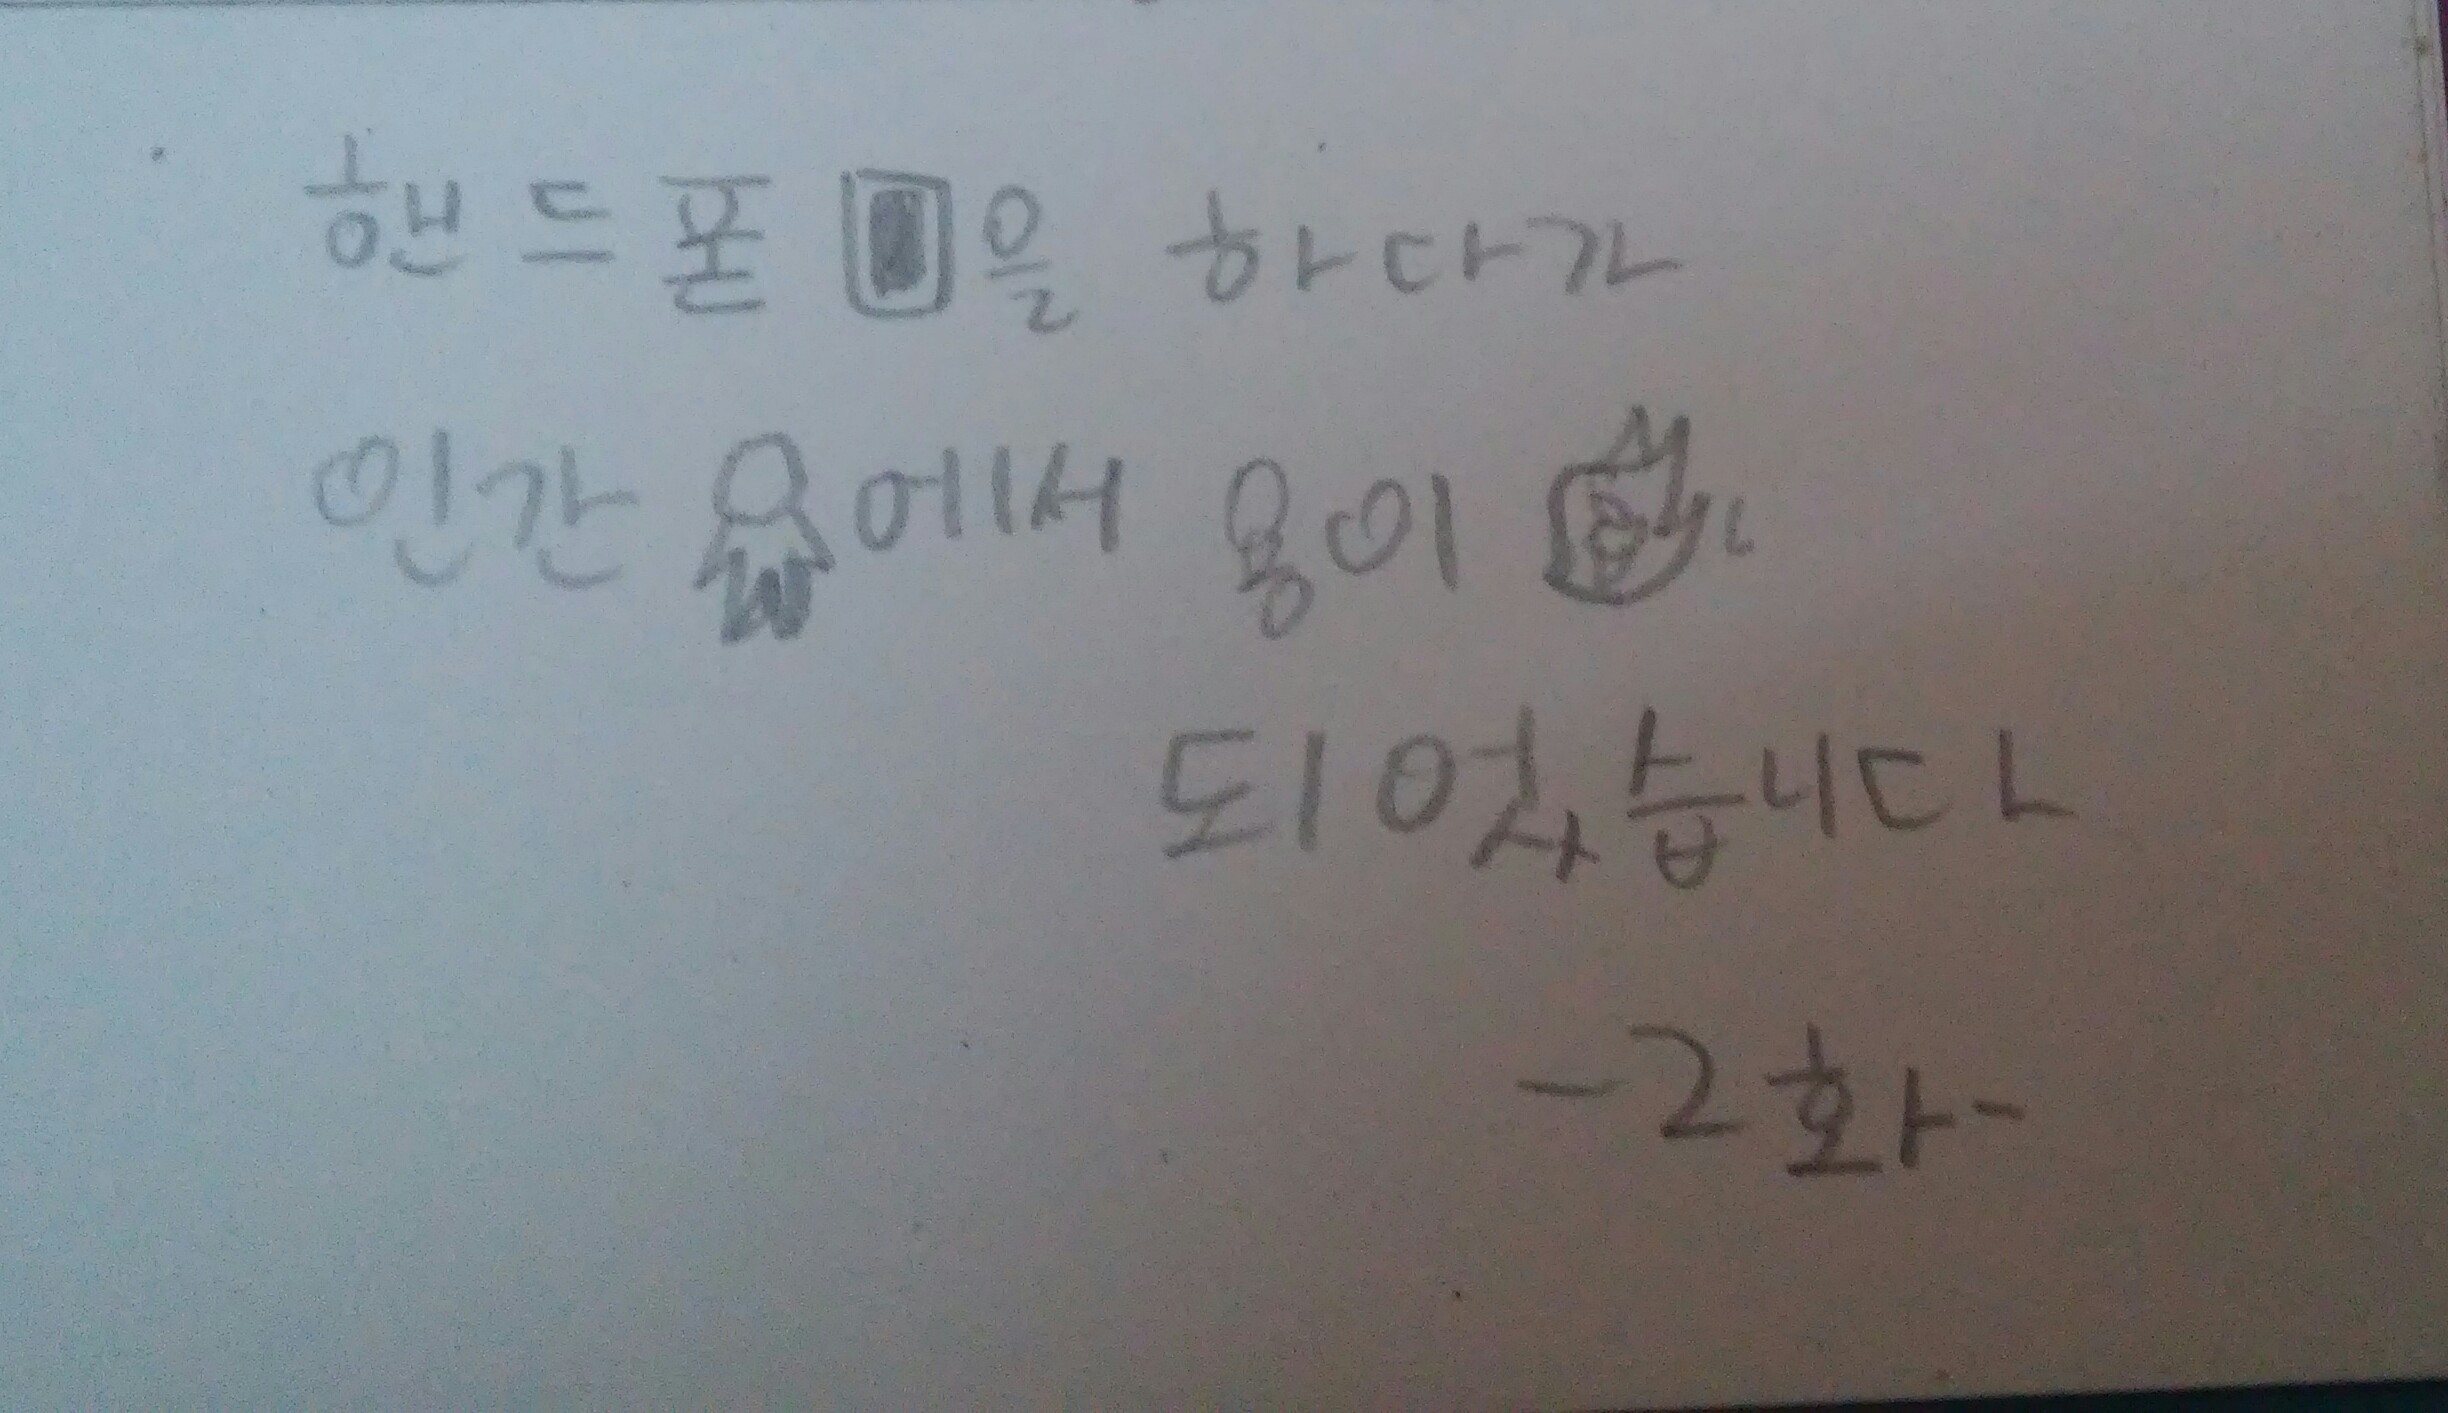 핸드폰을 하다가
인간에서 용이
되었습니다
-2화-